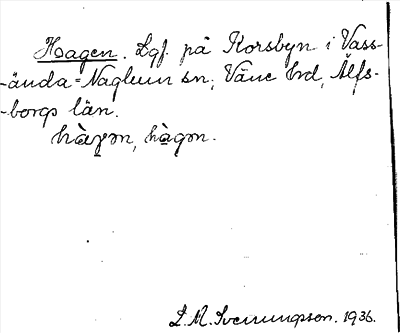 Hagen. Lgf. på Korsbyn i Vass-
-ända-Naglum sn, Väne hd, Älfs-
-borgs län.
hàgən, hàgən.
L. M. Svenungsson. 1936.